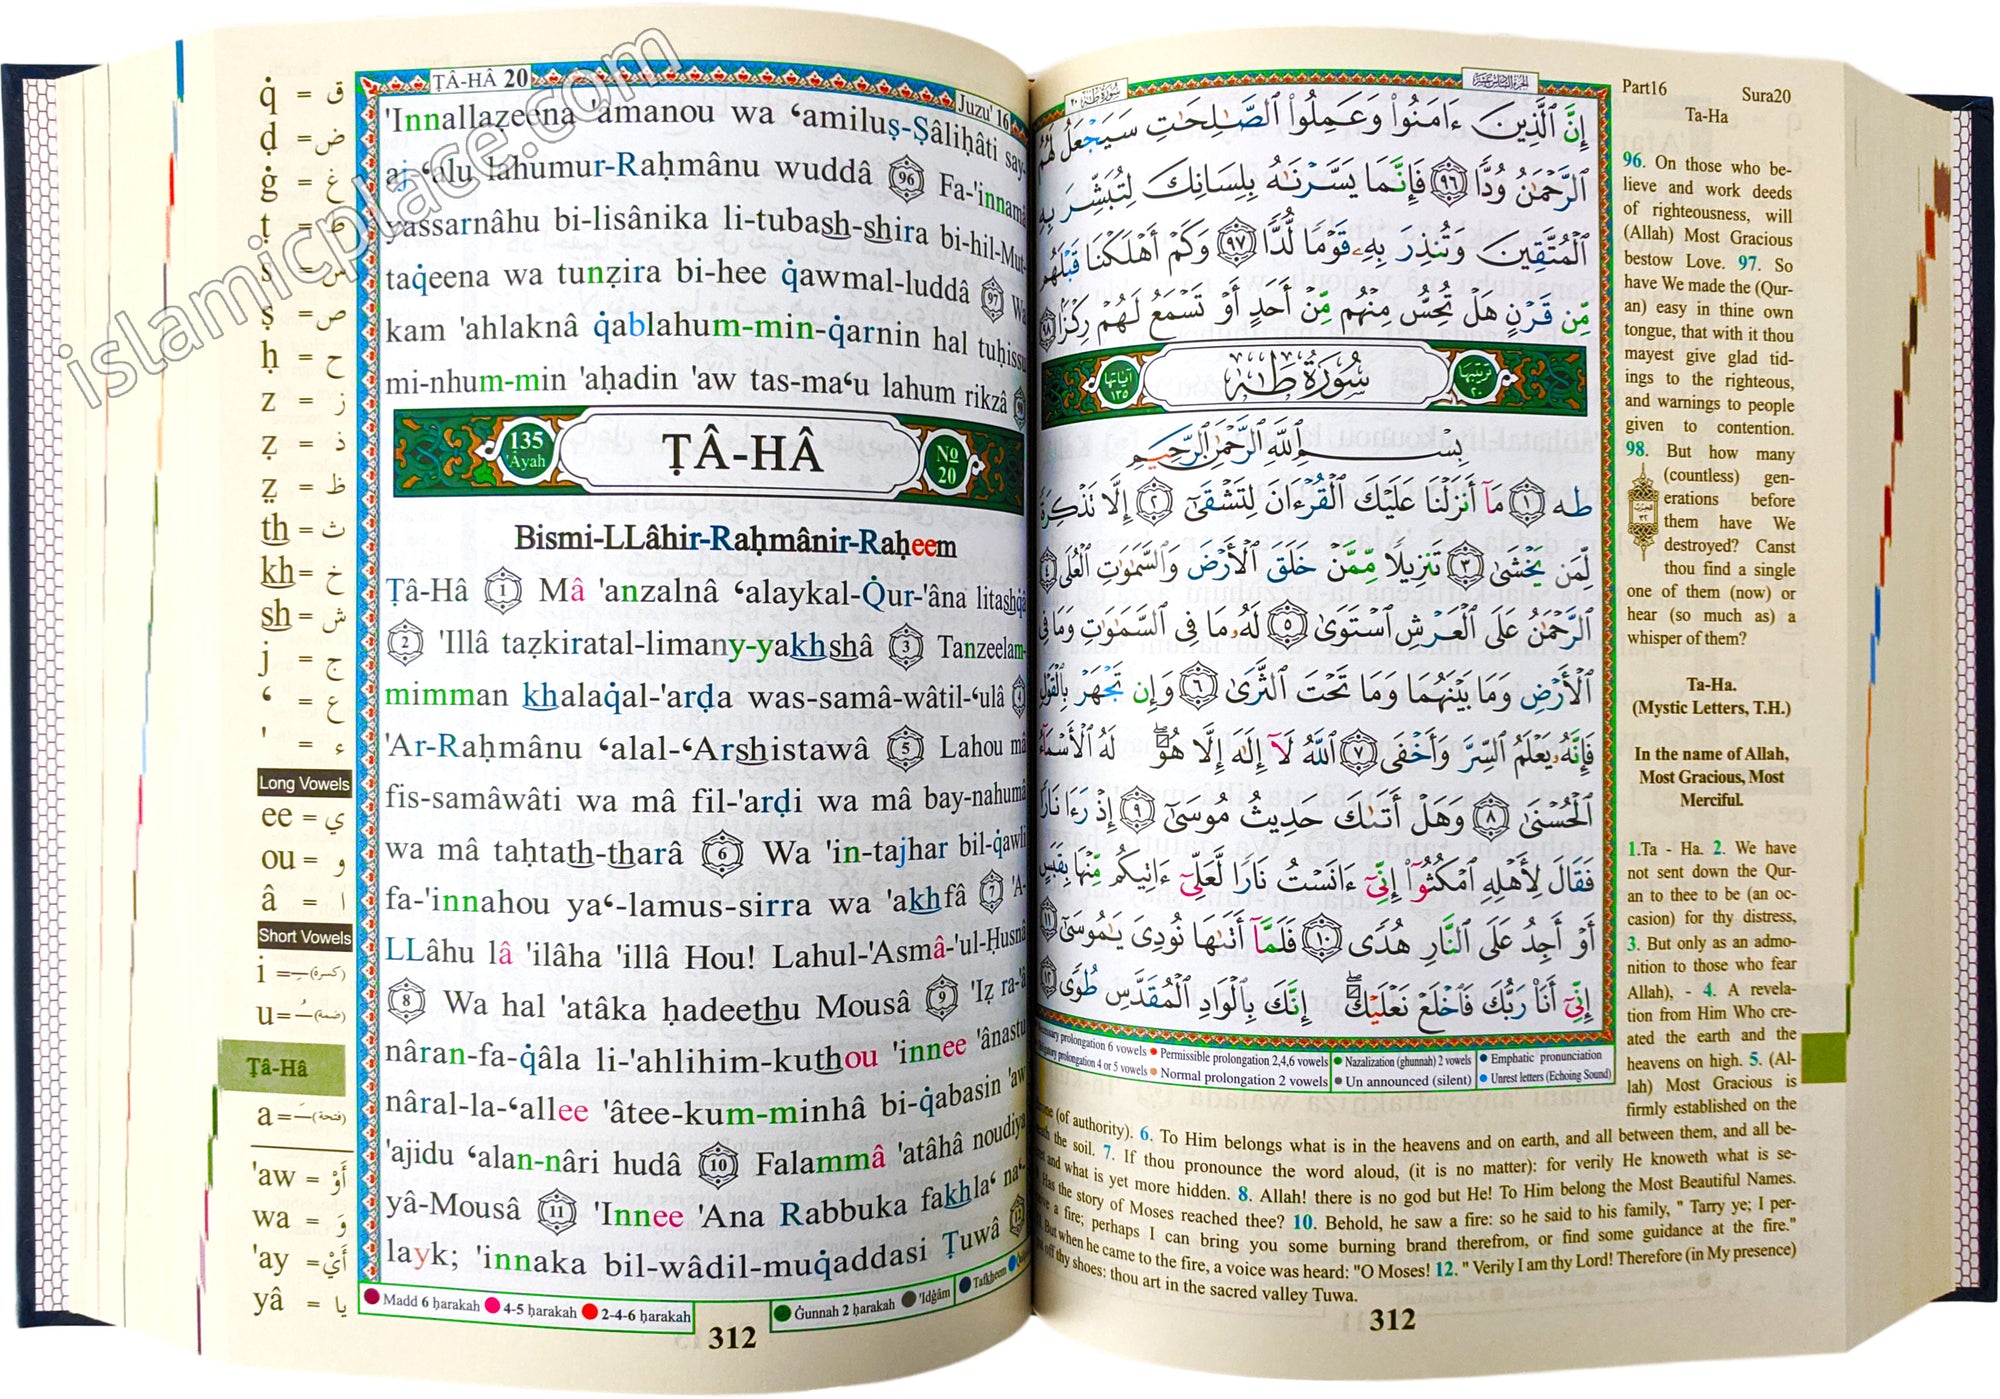 islamicplace.com
q̇ = ق
ḍ = ض
ġ = غ
ṭ = ط
s = س
ṣ = ص
ḥ = ح
z = ز
ẓ = ذ
ẓ = ظ
th = ث
kh = خ
sh = ش
j = ج
‘ = ع
' = ء
Long Vowels
ee = ي
ou = و
â = ا
Short Vowels
i = (كسرة)
u = (ضمة)
Ṭâ-Hâ
a = (فتحة)
'aw = أَوْ
wa = وَ
'ay = أَيْ
yâ = يا
ṬÂ-HÂ 20
Juzu' 16
'Innallaẓeena 'âmanou wa ‘amiluṣ-Ṣâliḥâti say-
aj ‘alu lahumur-Raḥmânu wuddâ 96 Fa-'innamâ
yassarnâhu bi-lisânika li-tubash-shira bi-hil-Mut-
taq̇eena wa tunẓira bi-hee q̇awmal-luddâ 97 Wa
kam 'ahlaknâ q̇ablahum-min-q̇arnin hal tuḥissu
mi-nhum-min 'aḥadin 'aw tas-ma‘u lahum rikzâ 98
135 'Âyah
ṬÂ-HÂ
No 20
Bismi-LLâhir-Raḥmânir-Raḥeem
Ṭâ-Hâ 1 Mâ 'anzalnâ ‘alaykal-Q̇ur-'âna litashq̇â
2 'Illâ taẓkiratal-limany-yakhshâ 3 Tanzeelam-
mimman khalaq̇al-'arḍa was-samâ-wâtil-‘ulâ 4
'Ar-Raḥmânu ‘alal-‘Arshistawâ 5 Lahou mâ
fis-samâwâti wa mâ fil-'arḍi wa mâ bay-nahumâ
wa mâ taḥtath-tharâ 6 Wa 'in-tajhar bil-q̇awli
fa-'innahou ya‘-lamus-sirra wa 'akhfâ 7 'A-
LLâhu lâ 'ilâha 'illâ Hou! Lahul-'Asmâ-'ul-Ḥusnâ
8 Wa hal 'atâka ḥadeethu Mousâ 9 'Iẓ ra-'â
nâran-fa-q̇âla li-'ahlihim-kuthou 'innee 'ânastu
nâral-la-‘allee 'âtee-kum-minhâ bi-q̇abasin 'aw
'ajidu ‘alan-nâri hudâ 10 Falammâ 'atâhâ noudiya
yâ-Mousâ 11 'Innee 'Ana Rabbuka fakhla‘ na‘-
layk; 'innaka bil-wâdil-muq̇addasi Ṭuwâ 12
Madd 6 ḥarakah 4-5 ḥarakah 2-4-6 ḥarakah
Ġunnah 2 ḥarakah 'Idġâm Tafkheem
312
سُورَةُ طه ٢٠
الجزء السادس عشر
إِنَّ ٱلَّذِينَ ءَامَنُواْ وَعَمِلُواْ ٱلصَّـٰلِحَـٰتِ سَيَجْعَلُ لَهُمُ
ٱلرَّحْمَـٰنُ وُدًّا ٩٦ فَإِنَّمَا يَسَّرْنَـٰهُ بِلِسَانِكَ لِتُبَشِّرَ بِهِ
ٱلْمُتَّقِينَ وَتُنذِرَ بِهِۦ قَوْمًا لُّدًّا ٩٧ وَكَمْ أَهْلَكْنَا قَبْلَهُم
مِّن قَرْنٍ هَلْ تُحِسُّ مِنْهُم مِّنْ أَحَدٍ أَوْ تَسْمَعُ لَهُمْ رِكْزًا ٩٨
ترتيبها ٢٠
سُورَةُ طه
آياتها ١٣٥
بِسْمِ ٱللَّهِ ٱلرَّحْمَـٰنِ ٱلرَّحِيمِ
طه ١ مَآ أَنزَلْنَا عَلَيْكَ ٱلْقُرْءَانَ لِتَشْقَىٰٓ ٢ إِلَّا تَذْكِرَةً
لِّمَن يَخْشَىٰ ٣ تَنزِيلًا مِّمَّنْ خَلَقَ ٱلْأَرْضَ وَٱلسَّمَـٰوَٰتِ ٱلْعُلَى ٤
ٱلرَّحْمَـٰنُ عَلَى ٱلْعَرْشِ ٱسْتَوَىٰ ٥ لَهُۥ مَا فِى ٱلسَّمَـٰوَٰتِ وَمَا فِى
ٱلْأَرْضِ وَمَا بَيْنَهُمَا وَمَا تَحْتَ ٱلثَّرَىٰ ٦ وَإِن تَجْهَرْ بِٱلْقَوْلِ
فَإِنَّهُۥ يَعْلَمُ ٱلسِّرَّ وَأَخْفَى ٧ ٱللَّهُ لَآ إِلَـٰهَ إِلَّا هُوَ ۖ لَهُ ٱلْأَسْمَآءُ
ٱلْحُسْنَىٰ ٨ وَهَلْ أَتَىٰكَ حَدِيثُ مُوسَىٰٓ ٩ إِذْ رَءَا نَارًا
فَقَالَ لِأَهْلِهِ ٱمْكُثُوٓاْ إِنِّىٓ ءَانَسْتُ نَارًا لَّعَلِّىٓ ءَاتِيكُم مِّنْهَا بِقَبَسٍ
أَوْ أَجِدُ عَلَى ٱلنَّارِ هُدًى ١٠ فَلَمَّآ أَتَىٰهَا نُودِىَ يَـٰمُوسَىٰٓ ١١
إِنِّىٓ أَنَا۠ رَبُّكَ فَٱخْلَعْ نَعْلَيْكَ ۖ إِنَّكَ بِٱلْوَادِ ٱلْمُقَدَّسِ طُوًى ١٢
prolongation 6 vowels Permissible prolongation 2,4,6 vowels Nazalization (ghunnah) 2 vowels Emphatic pronunciation
prolongation 4 or 5 vowels Normal prolongation 2 vowels Un announced (silent) Unrest letters (Echoing Sound)
Part16 Sura20
Ta-Ha
96. On those who be-
lieve and work deeds
of righteousness, will
(Allah) Most Gracious
bestow Love. 97. So
have We made the (Qur-
an) easy in thine own
tongue, that with it thou
mayest give glad tid-
ings to the righteous,
and warnings to people
given to contention.
98. But how many
(countless) gen-
erations before
them have We
destroyed? Canst
thou find a single
one of them (now) or
hear (so much as) a
whisper of them?
Ta-Ha.
(Mystic Letters, T.H.)
In the name of Allah,
Most Gracious, Most
Merciful.
1.Ta - Ha. 2. We have
not sent down the Qur-
an to thee to be (an oc-
casion) for thy distress,
3. But only as an admo-
nition to those who fear
Allah), - 4. A revela-
tion from Him Who cre-
ated the earth and the
heavens on high. 5. (Al-
lah) Most Gracious is
firmly established on the
(of authority). 6. To Him belongs what is in the heavens and on earth, and all between them, and all be-
the soil. 7. If thou pronounce the word aloud, (it is no matter): for verily He knoweth what is se-
and what is yet more hidden. 8. Allah! there is no god but He! To Him belong the Most Beautiful Names.
Has the story of Moses reached thee? 10. Behold, he saw a fire: so he said to his family, " Tarry ye; I per-
a fire; perhaps I can bring you some burning brand therefrom, or find some guidance at the fire."
But when he came to the fire, a voice was heard: "O Moses! 12. " Verily I am thy Lord! Therefore (in My presence)
off thy shoes: thou art in the sacred valley Tuwa.
312